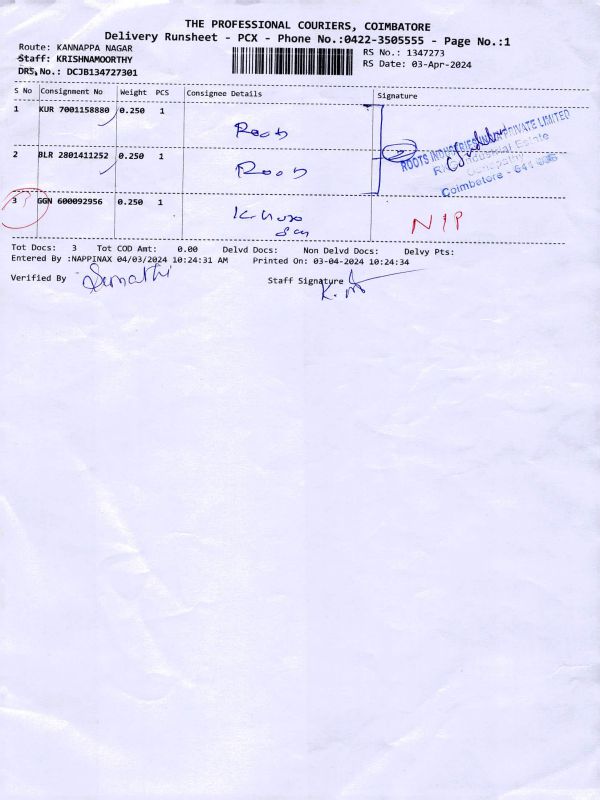 THE PROFESSIONAL COURIERS, COIMBATORE
Delivery Runsheet - PCX - Phone No.:0422-3505555 - Page No.:1
Route: KANNAPPA NAGAR
RS No.: 1347273
Staff: KRISHNAMOORTHY
RS Date: 03-Apr-2024
DRS No.: DCJB134727301
S No Consignment No Weight PCS Consignee Details Signature
1 KUR 7001158880 0.250 1
Roots
2 BLR 2801411252 0.250 1
Roots
ROOTS INDUSTRIES PRIVATE LIMITED
Industrial Estate
Ganapathy
Coimbatore - 641 006
3 GGN 600092956 0.250 1
N I P
Tot Docs: 3 Tot COD Amt: 0.00 Delvd Docs: Non Delvd Docs: Delvy Pts:
Entered By :NAPPINAX 04/03/2024 10:24:31 AM Printed On: 03-04-2024 10:24:34
Verified By Sumathi Staff Signature